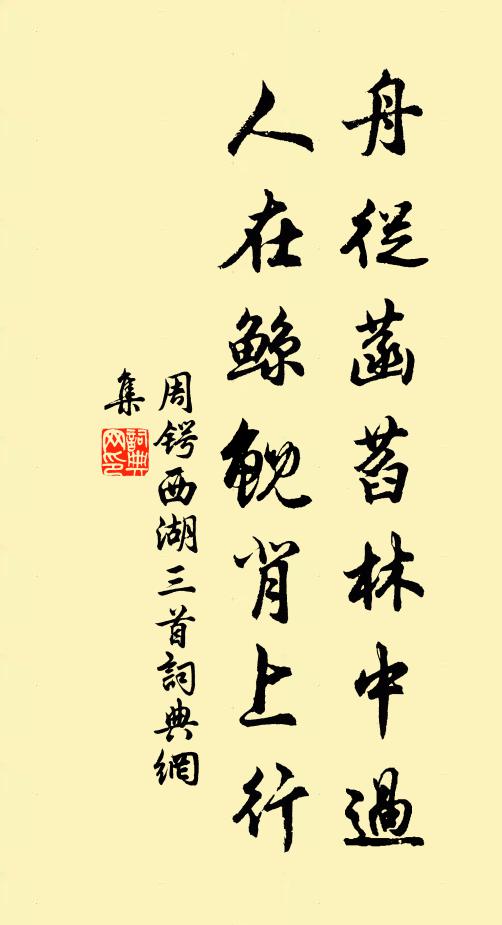 舟從菡萏林中過
人在鯨鯢背上行
周鍔西湖三首詞典網
集
詞典
网印